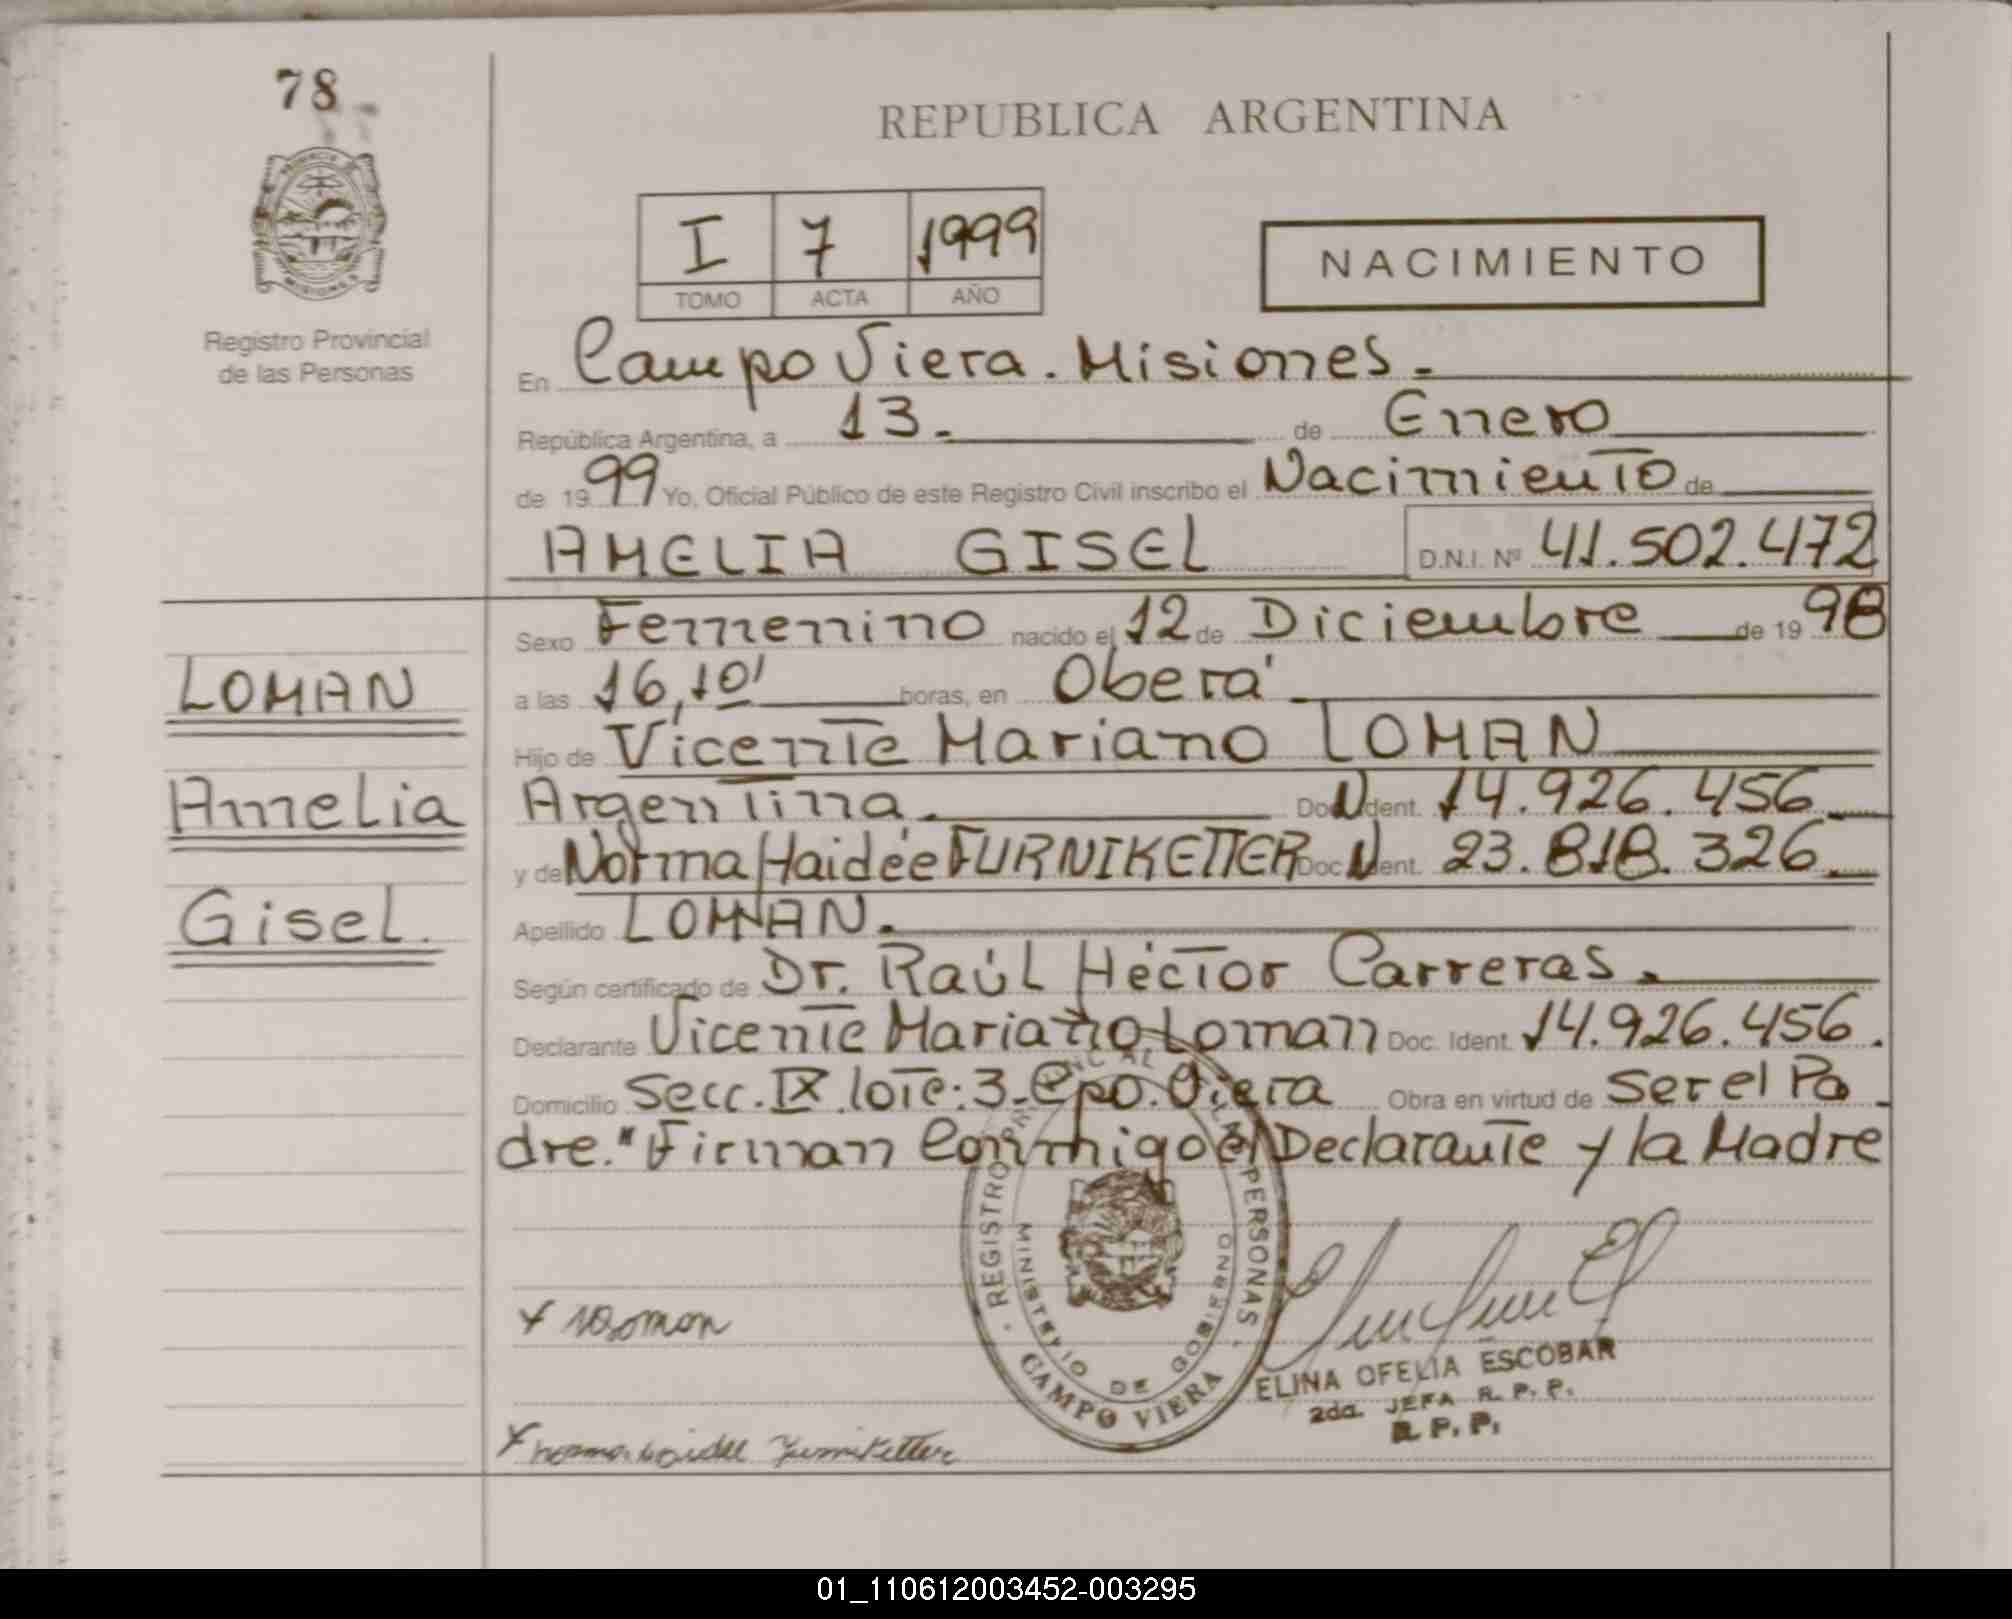 78
REPUBLICA ARGENTINA
I 7 1999
TOMO ACTA AÑO
NACIMIENTO
PROVINCIA DE
MISIONES
Registro Provincial
de las Personas
En Campo Viera. Misiones.
República Argentina, a 13. de Enero
de 1999 Yo, Oficial Público de este Registro Civil inscribo el Nacimiento de
AMELIA GISEL D.N.I. Nº 41.502.472
Sexo Femenino nacido el 12 de Diciembre de 1998
LOMAN
a las 16,10' horas, en Oberá
Hijo de Vicente Mariano LOMAN
Amelia
Argentina. Doc. N Ident. 14.926.456
y de Norma Haidée FURNIKETTER Doc N Ident. 23.818.326
Gisel.
Apellido LOMAN.
Según certificado de Dr. Raúl Héctor Carreras.
Declarante Vicente Mariano Loman Doc. Ident. 14.926.456.
Domicilio Secc. IX lote: 3. Cpo. Viera Obra en virtud de Ser el Pa
dre." Firman Conmigo el Declarante y la Madre
REGISTRO PROVINCIAL DE LAS PERSONAS
MINISTERIO DE GOBIERNO
CAMPO VIERA
ELINA OFELIA ESCOBAR
2da. JEFA R. P. P.
R. P. P.
norma haidee Furniketter
01_110612003452-003295